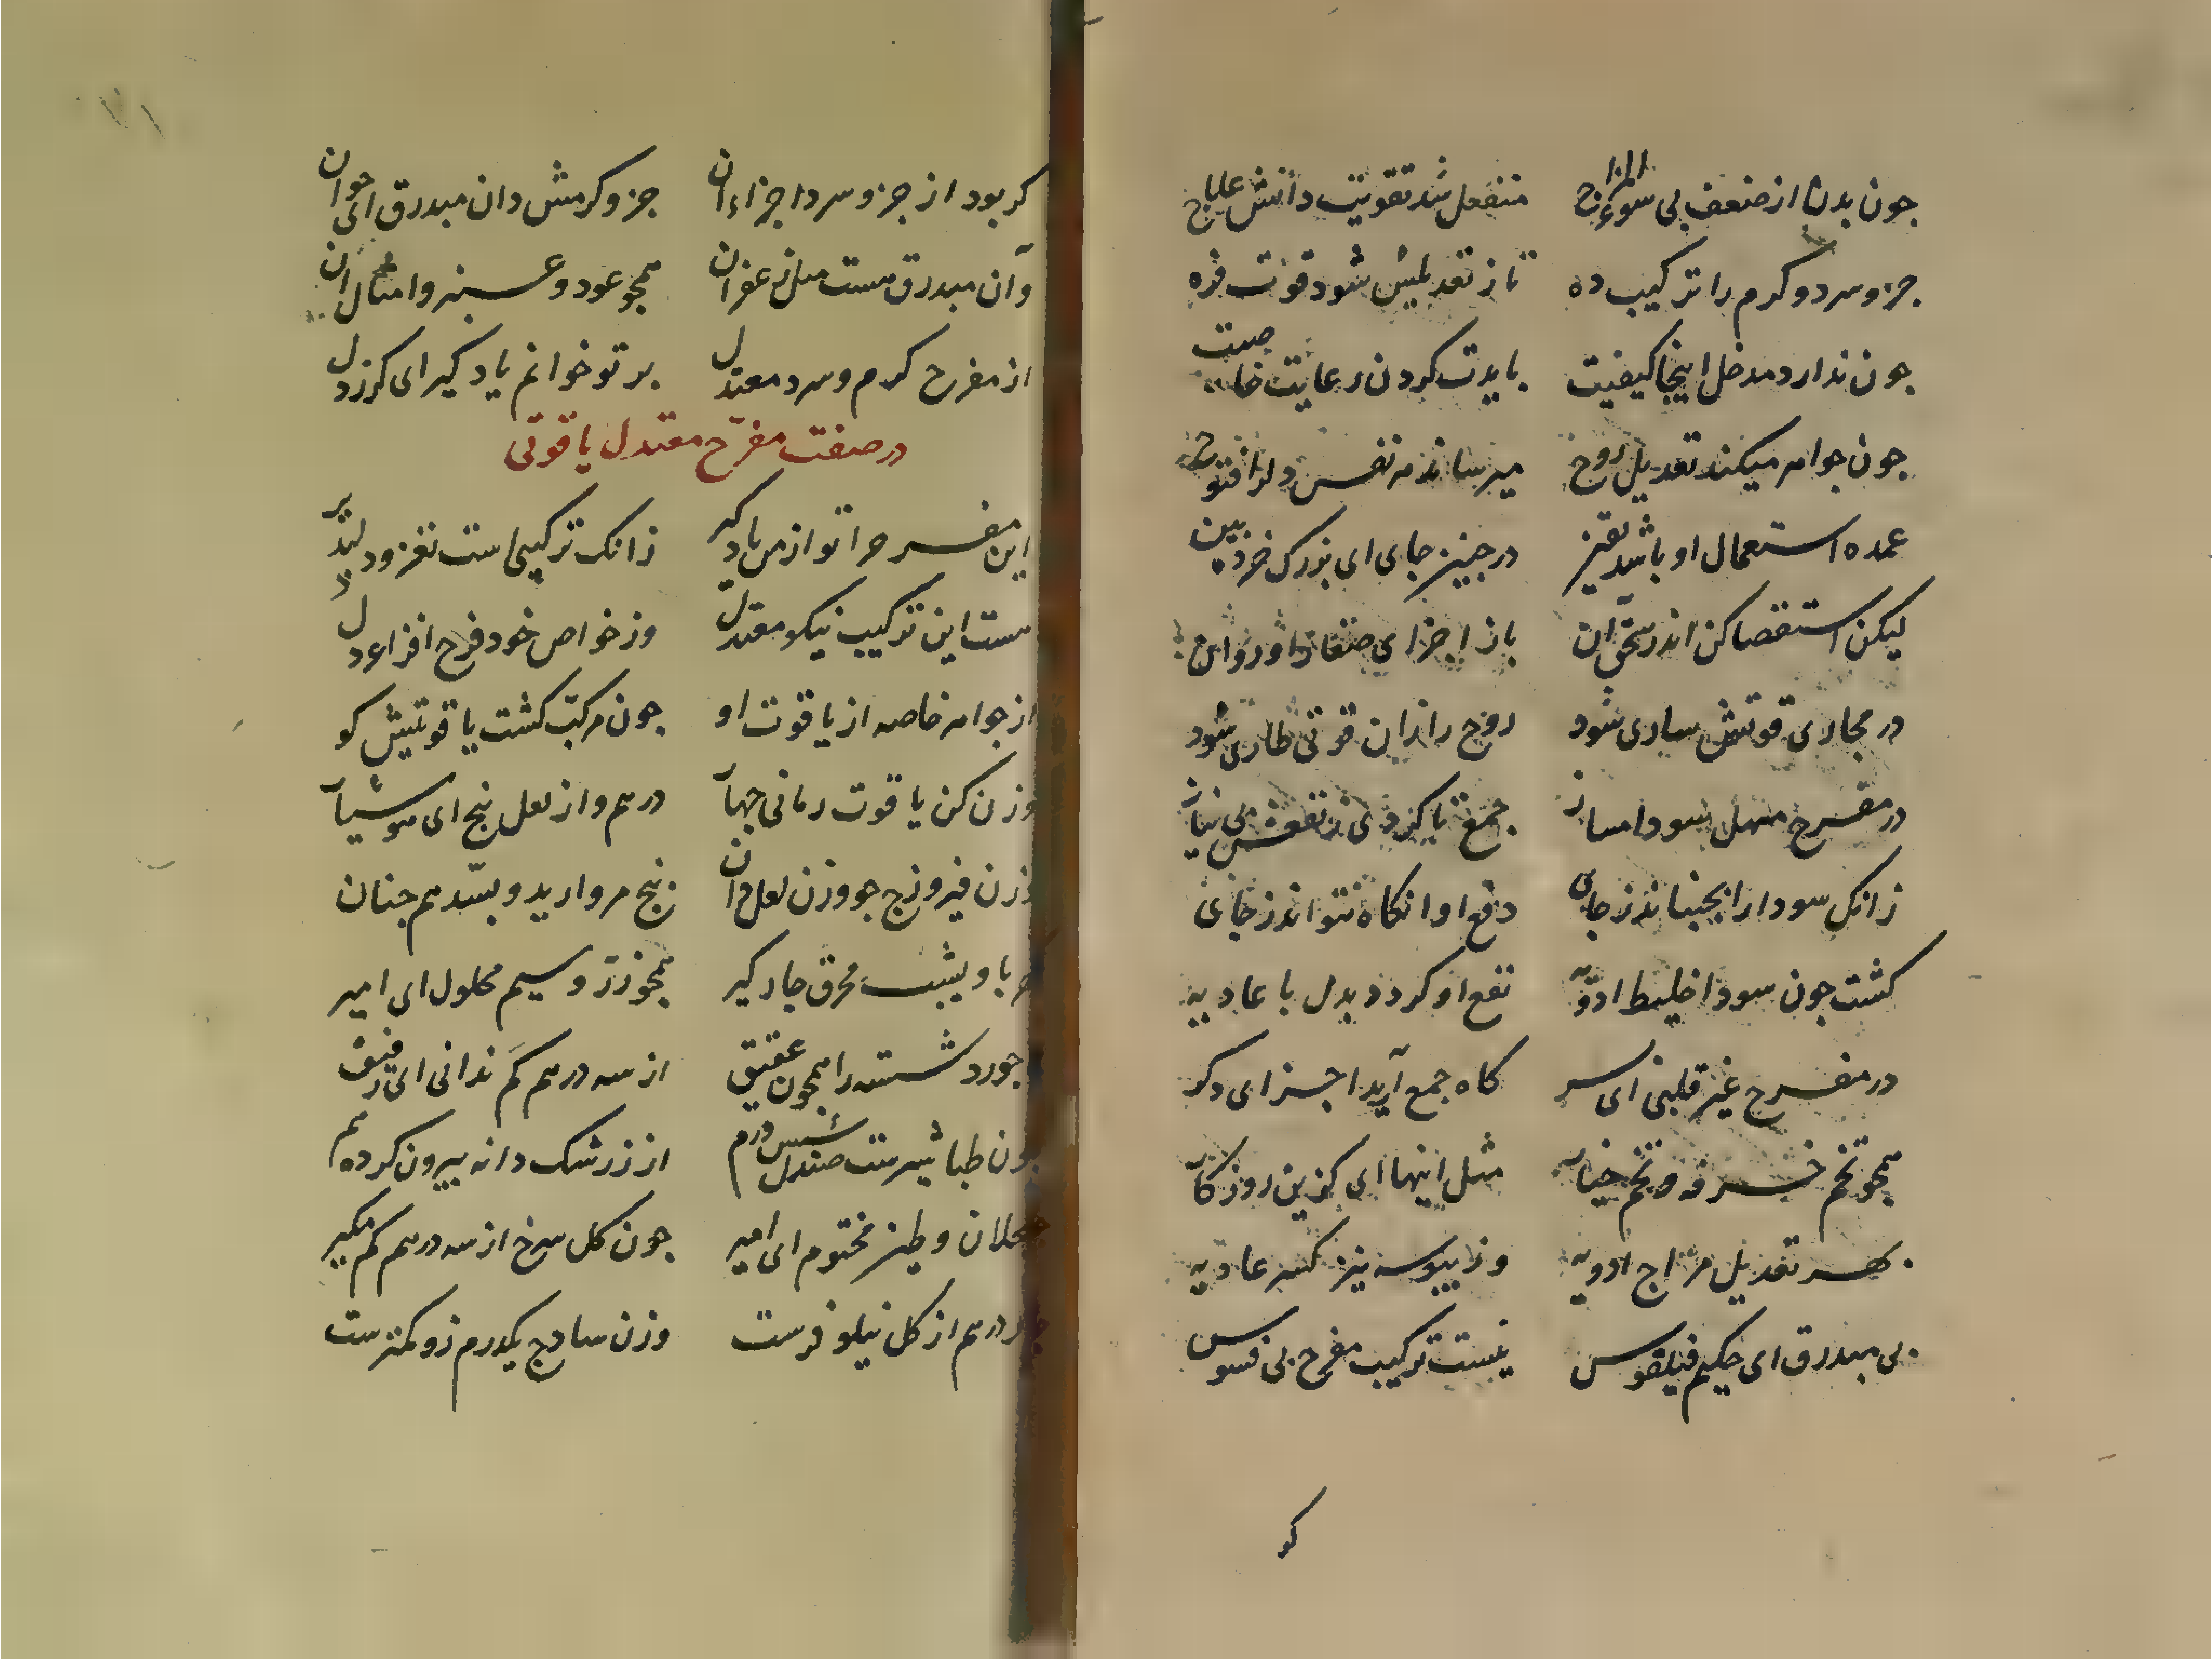 چون بدن از ضعف بی سوء المزاج منفعل شد تقویت دانش علاج
جزو سرد و گرم را ترکیب ده تا ز تعدیلش شود قوت فره
چون ندارد مدخل اینجا کیفیت بایدت کردن رعایت خاصیت
چون جواهر میکند تعدیل روح میرساند مر نفس دل را فتوح
عمده استعمال او باشد یقین در چنین جای ای بزرک خرده بین
لیکن استقصا کن اندر سحق آن باز اجزای صفار
در مجاری قوتش ساری شود روح را زان قوتی طاری شود
در مفرح مسهل سودا مساز جمع تا کردی ز نفعش بی نیاز
زانک سودا را بجنباند ز جای دفع او انکاه نتواند ز جای
کشت چون سودا خلیط ادویه نفع او کردد بدل با عادیه
در مفرح غیر قلبی ای پسر کاه جمع آید اجزای دکر
همچو تخم خرفه و تخم خیار مثل اینها ای کزین روزکار
بهر تعدیل مزاج ادویه وز یبوسه نیز کسر عادیه
بی مبدرق ای حکیم فیلقوس نیست ترکیب مفرح بی فسوس
کر
کر بود از جزو سرد اجزاء آن جزو کرمش دان مبدرق ای جوان
وآن مبدرق هست مثل زعفران همچو عود و عنبر و امثال آن
از مفرح کرم و سرد معتدل بر تو خوانم یاد کیر ای کرزدل
در صفت مفرّح معتدل یاقوتی
این مفرح را تو از من یاد کیر زانک ترکیبی است نغز و دلپذیر
هست این ترکیب نیکو معتدل وز خواص خود فرح افزاء دل
از جواهر خاصه از یاقوت او چون مرکب کشت یاقوتیش کو
وزن کن یاقوت رمانی چهار درهم و از لعل پنج ای هوشیار
وزن فیروزج چو وزن لعل دان پنج مروارید و بسّد هم چنان
کهربا و یشب محرق چار کیر همچو زر و سیم محلول ای امیر
لاجورد شسته را همچون عقیق از سه درهم کم ندانی ای رفیق
چون طباشیرست صندل شش درم از زرشک دانه بیرون کرده هم
و طین مختوم ای امیر چون کل سرخ از سه درهم کم مکیر
چار درهم از کل نیلوفرست وزن سادج یکدرم زو کمترست